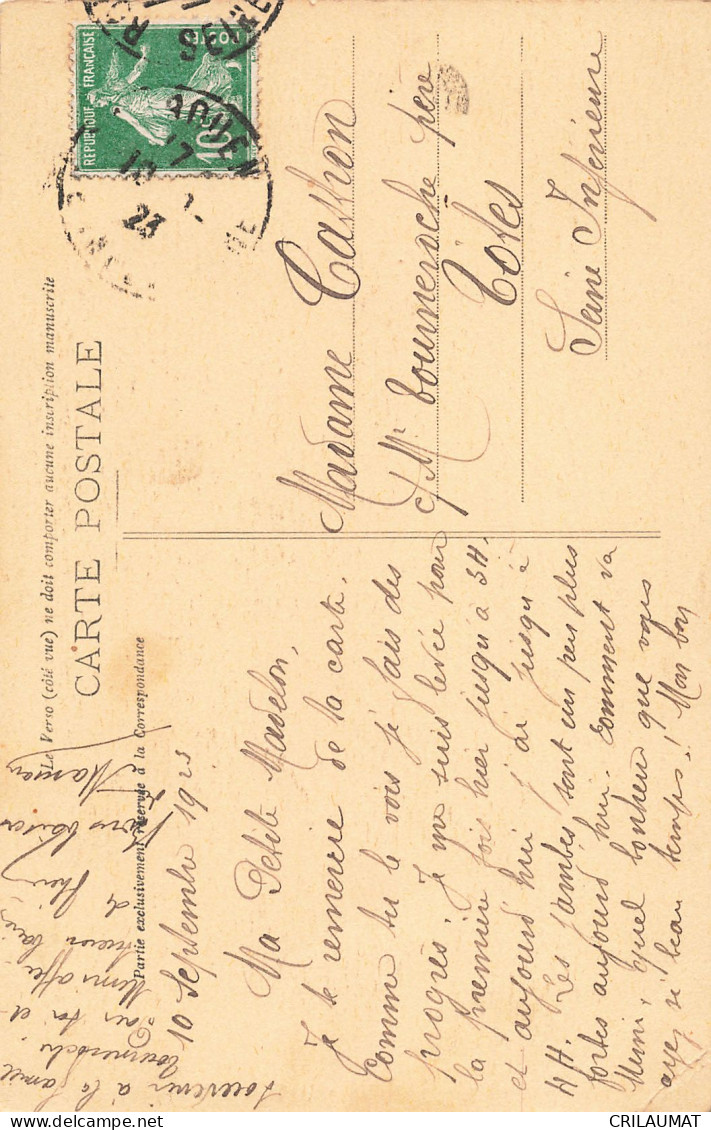 Le Verso (côté vue) ne doit comporter aucune inscription manuscrite
CARTE POSTALE
Partie exclusivement réservée à la Correspondance
RÉPUBLIQUE FRANÇAISE
POSTES
10
17
10
23
Madame Cashon
c/ Mr Tourneroche père
Tôtes
Seine Inférieure
10 Septembre 1923
Ma Petite Madelon,
Je te remercie de ta carte.
Comme tu le vois je fais des
progrès, je me suis levée pour
la première fois hier jusqu'à 3H.
et aujourd'hui j'ai jusqu'à
4H. Les jambes sont un peu plus
fortes aujourd'hui. Comment va
Mimi, quel bonheur que vous
ayez si beau temps! Mon bon
souvenir à la famille
Tourneroche. à toi et
Mimi affectueux baisers
Maman
CRILAUMAT